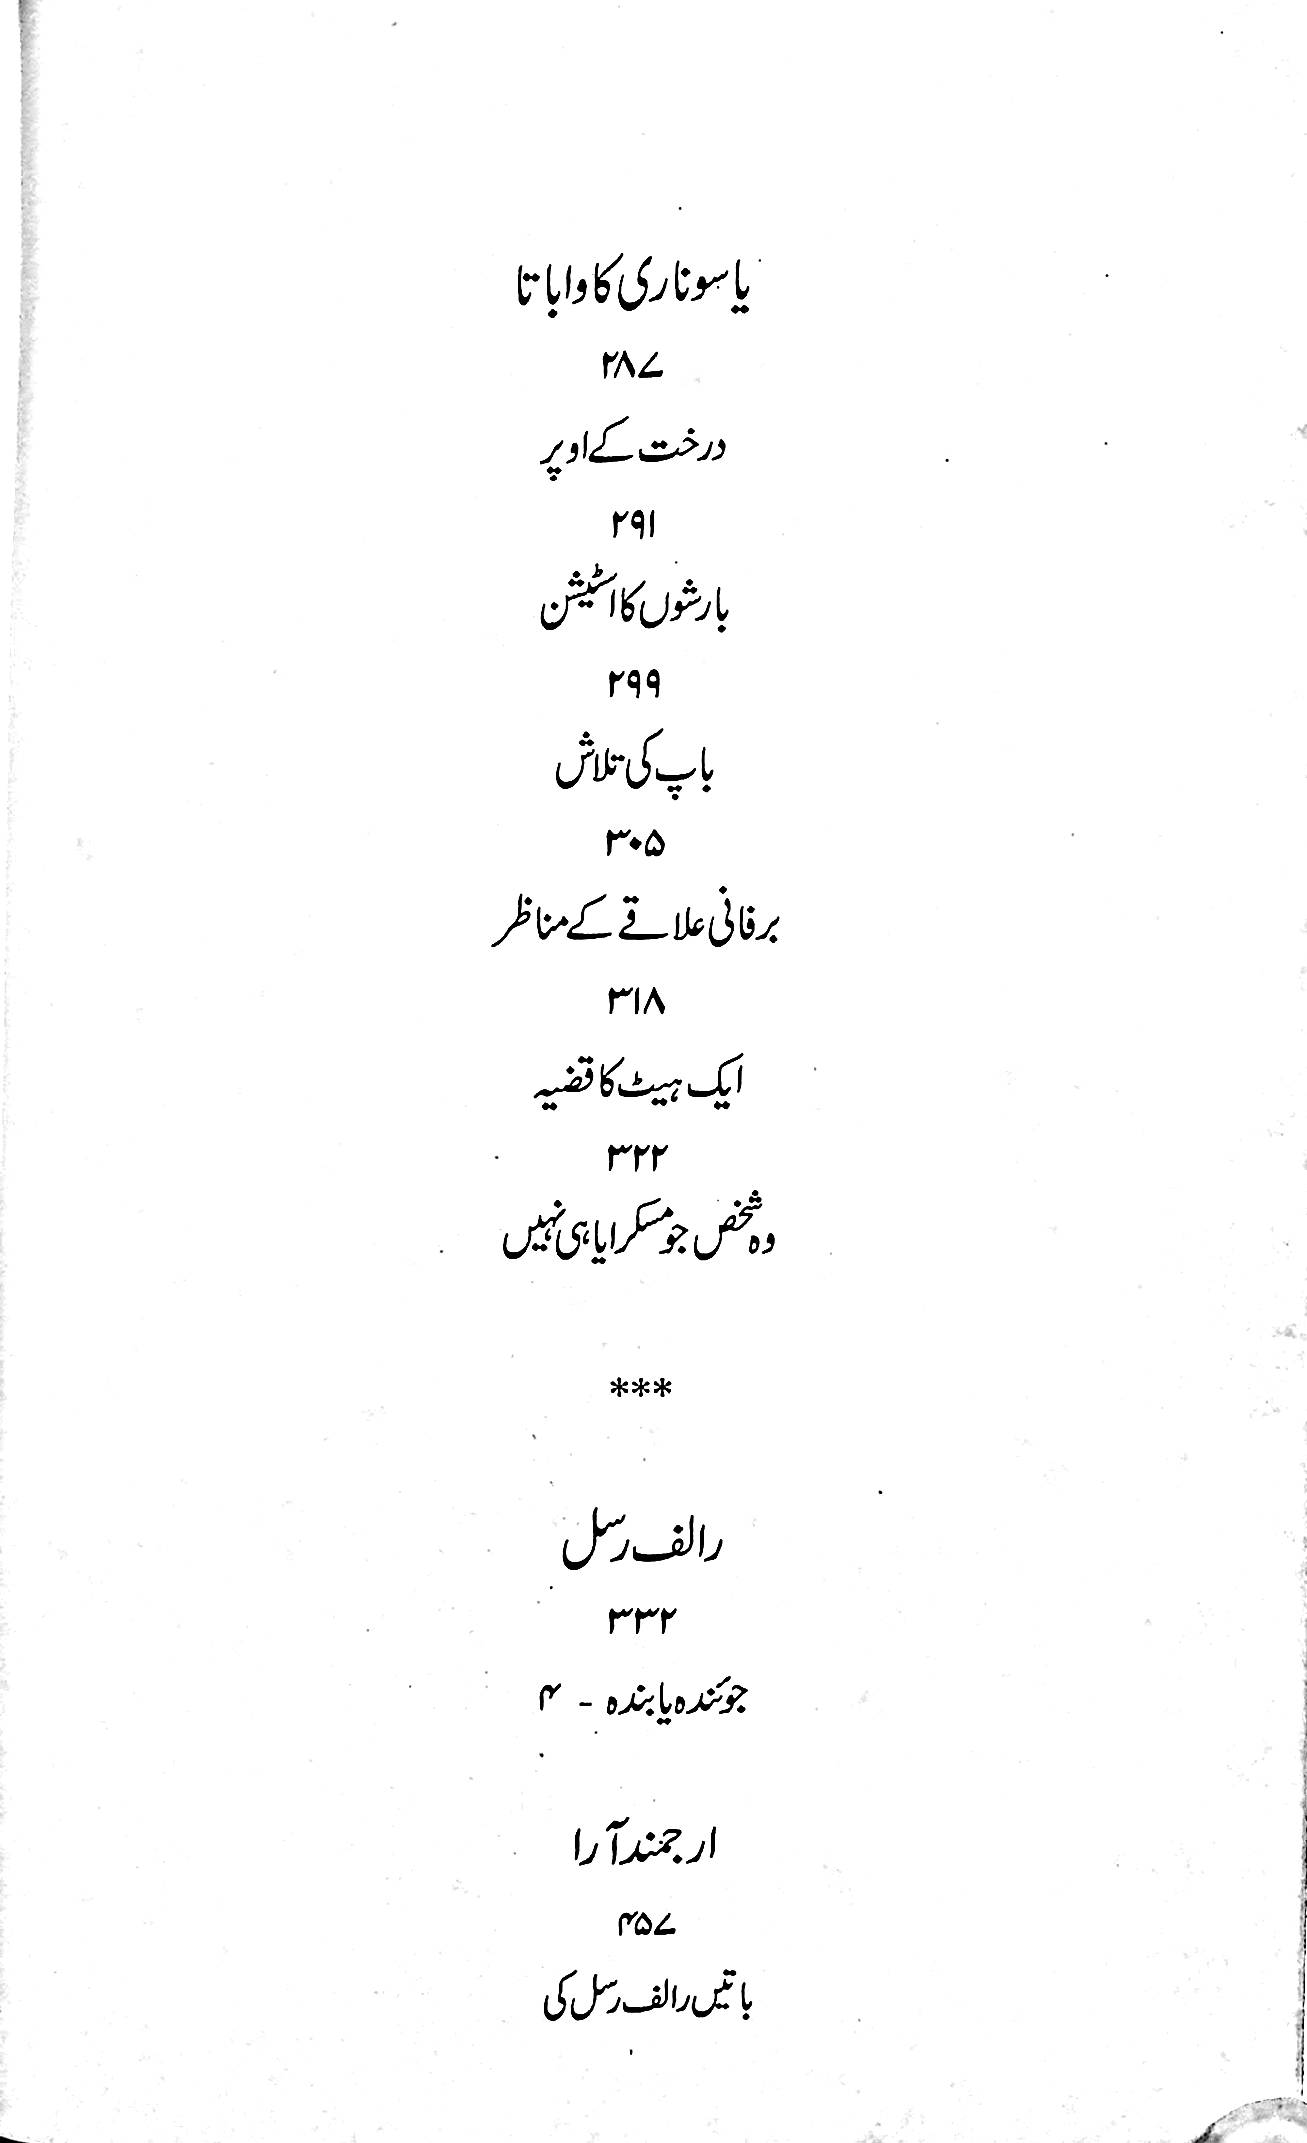 یاسوناری کاواباتا
۲۸۷
درخت کے اوپر
۲۹۱
بارشوں کا اسٹیشن
۲۹۹
باپ کی تلاش
۳۰۵
برفانی علاقے کے مناظر
۳۱۸
ایک ہیٹ کا قضیہ
۳۲۲
وہ شخص جو مسکرایا ہی نہیں
***
رالف رسل
۳۳۲
جوئندہ یابندہ - ۴
ارجمند آرا
۴۵۷
باتیں رالف رسل کی